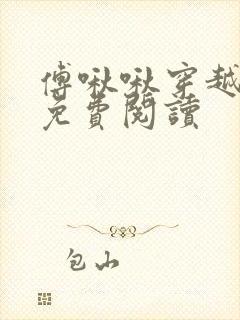 傅啾啾穿越
免費閱讀
包山